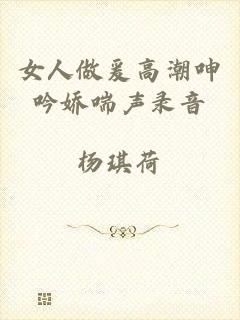 女人做爰高潮呻
吟娇喘声录音
杨琪荷